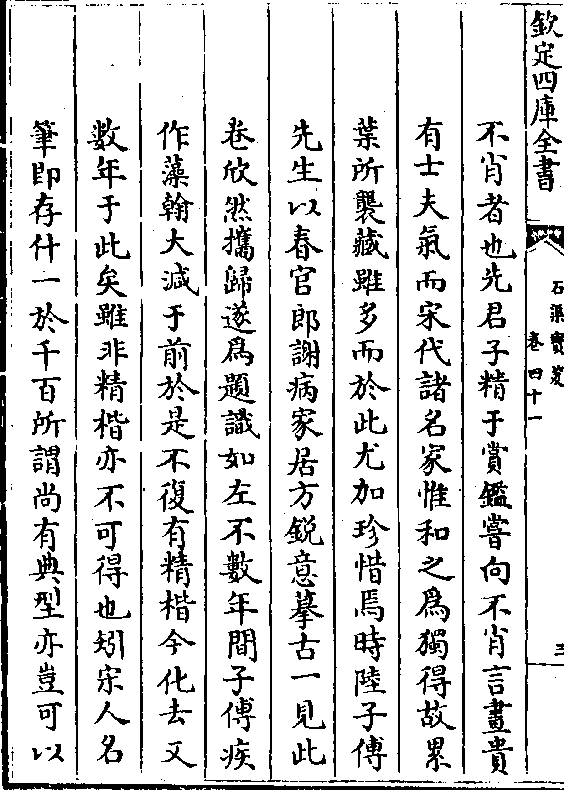 欽定四庫全書
石渠寶笈
卷四十一
三
不肖者也先君子精于賞鑑嘗向不肖言畫貴
有士夫氣而宋代諸名家惟和之為獨得故累
葉所襲藏雖多而於此尤加珍惜焉時陸子傅
先生以春官郎謝病家居方銳意摹古一見此
卷欣然攜歸遂為題識如左不數年間子傅疾
作藻翰大減于前於是不復有精楷今化去又
數年于此矣雖非精楷亦不可得也矧宋人名
筆即存什一於千百所謂尚有典型亦豈可以